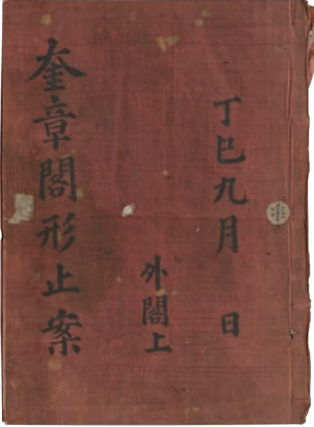 丁巳九月 日
外閣上
奎章閣形止案